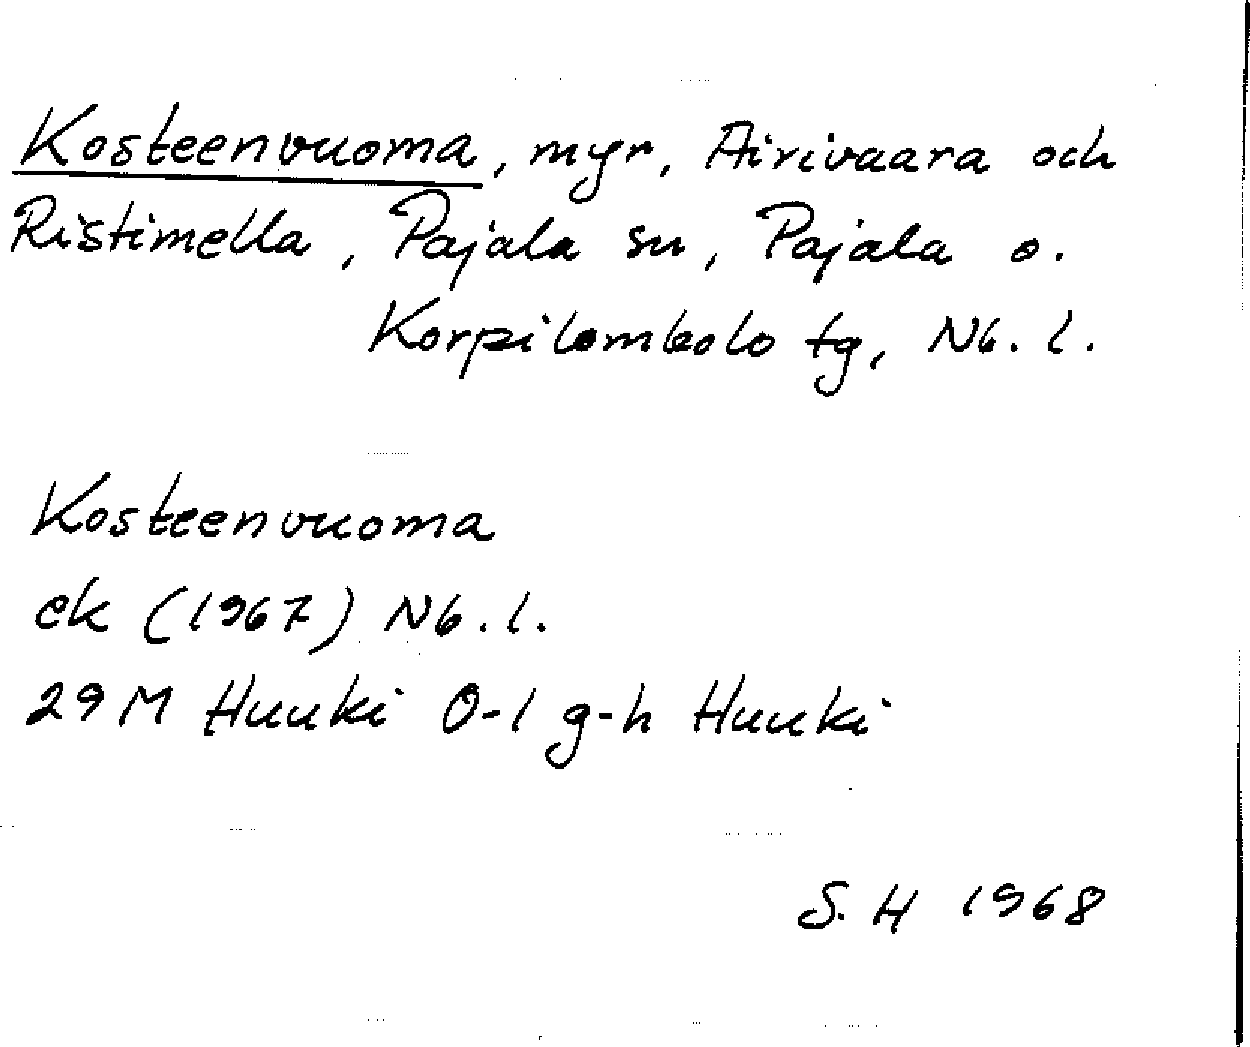 Kosteenvuoma, myr, Airivaara och
Ristimella, Pajala sn, Pajala o.
Korpilombolo tg, Nb. l.
Kosteenvuoma
ek (1967) Nb. l.
29 M Huuki 0-1 g-h Huuki
S. H 1968